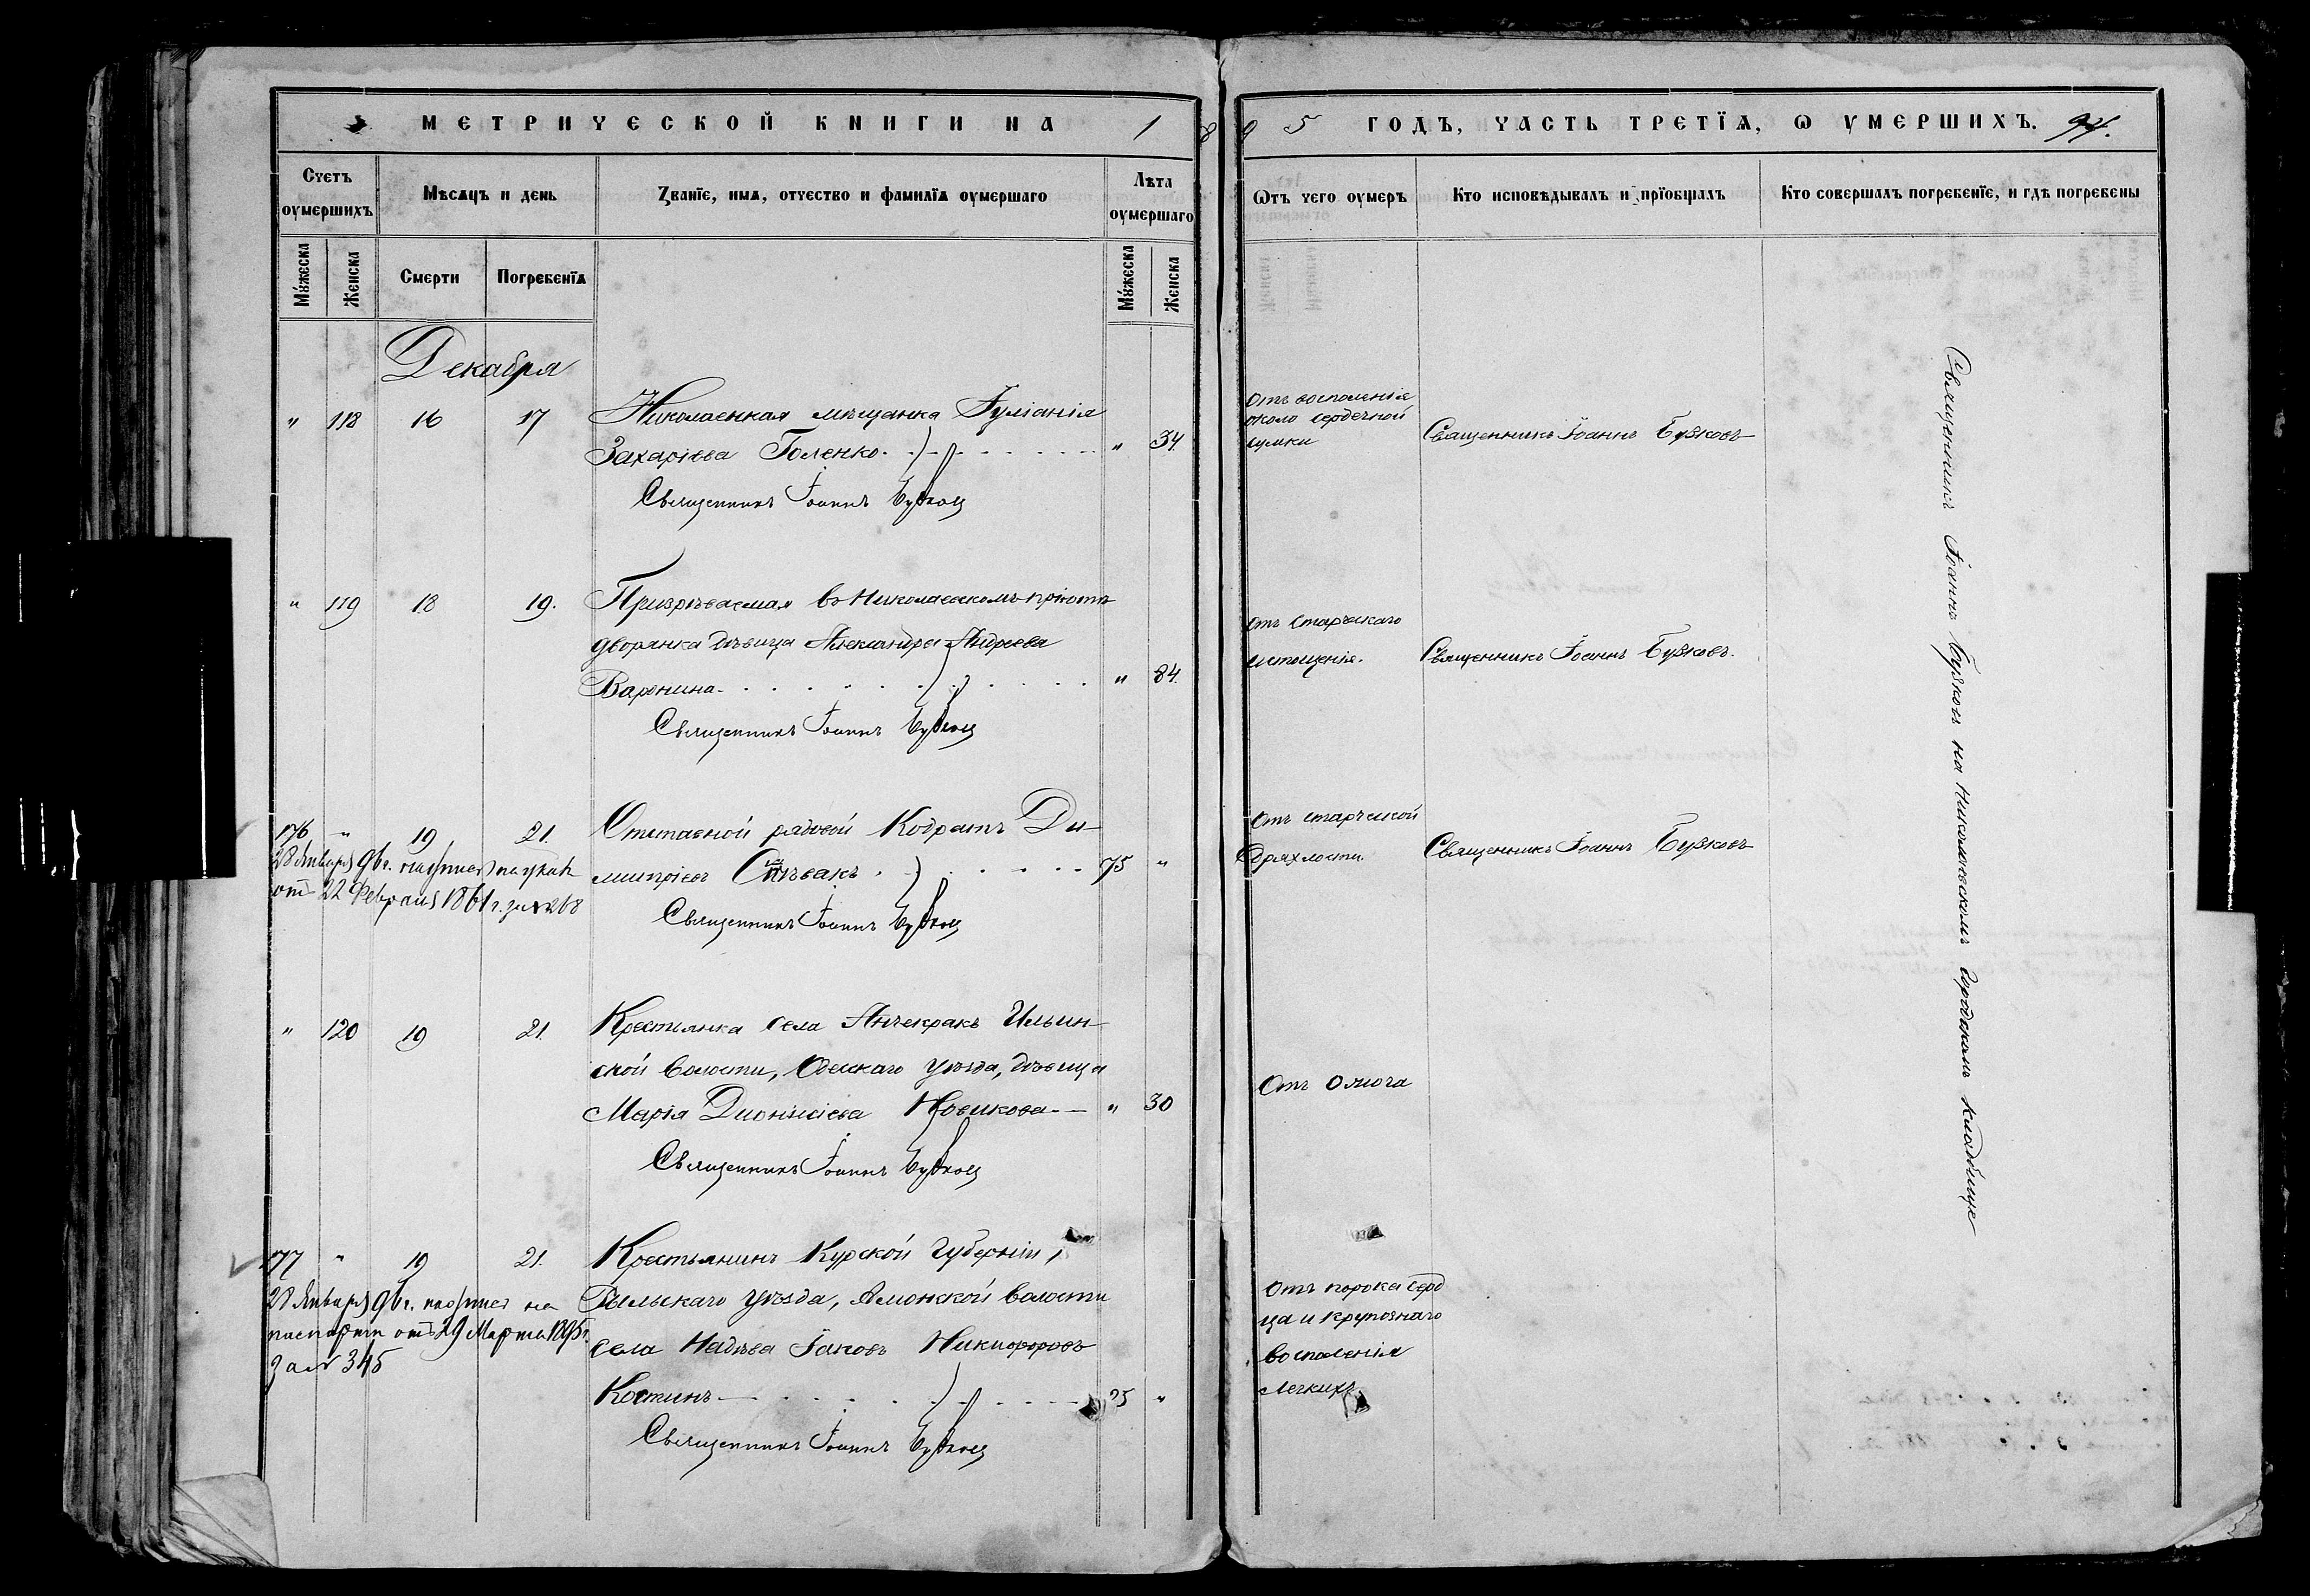 МЕТРИЧЕСКОЙ КНИГИ НА 1895 ГОДЪ, ЧАСТЬ ТРЕТІЯ, Ѡ УМЕРШИХЪ. 94.
Счетъ оумершихъ
Мѣсяцъ и день
Званіе, имя, отчество и фамилія оумершаго
Лѣта оумершаго
Ѿтъ чего оумеръ
Кто исповѣдывалъ и пріобщалъ
Кто совершалъ погребеніе, и гдѣ погребены
Мꙋжеска Женска Смерти Погребенія Мꙋжеска Женска
Декабря
" 118 16 17 Николаевская мѣщанка Іуліанія
Захаріева Голенко. " 34.
Отъ воспаленія
около сердечной
сумки
Священникъ Іоаннъ Бузковъ
Священникъ Іоаннъ Бузковъ
" 119 18 19. Призрѣваемая въ Николаевскомъ пріютѣ
дворянка дѣвица Александра Андреева
Варенина " 84.
Отъ старческаго
истощенія.
Священникъ Іоаннъ Бузковъ.
Священникъ Іоаннъ Бузковъ
176 " 19 21. Отставной рядовой Кодратъ Ди-
митріевъ Спѣвакъ 75 "
28 Января 96 г. надпись на указѣ
отъ 22 Февраля 1861 г. за № 268
Отъ старческой
дряхлости.
Священникъ Іоаннъ Бузковъ
Священникъ Іоаннъ Бузковъ
" 120 19 21. Крестьянка села Анчекракъ Ильин-
ской волости, Одесскаго уѣзда, дѣвица
Марія Діонисіева Новикова " 30
Отъ ожога
Священникъ Іоаннъ Бузковъ
177 " 19 21. Крестьянинъ Курской губерніи,
Рыльскаго уѣзда, Амонской волости
села Надѣва Іаковъ Никифоровъ
Костинъ 25 "
28 Января 96 г. надпись на
паспортѣ отъ 29 Марта 1895 г.
за № 345
Отъ порока серд
ца и крупознаго
воспаленія
легкихъ
Священникъ Іоаннъ Бузковъ
Священникъ Іоаннъ Бузковъ на Николаевскомъ городскомъ кладбище